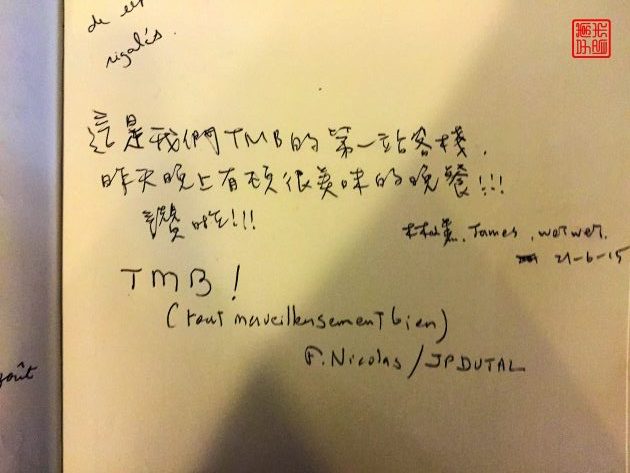 de
régalés.
這是我們TMB的第一站客棧.
昨天晚上有頓很美味的晚餐!!!
讚啦!!!
James, werwer.
21-6-15
TMB!
(tout merveilleusement bien)
F. Nicolas / JP DUTAL
goût